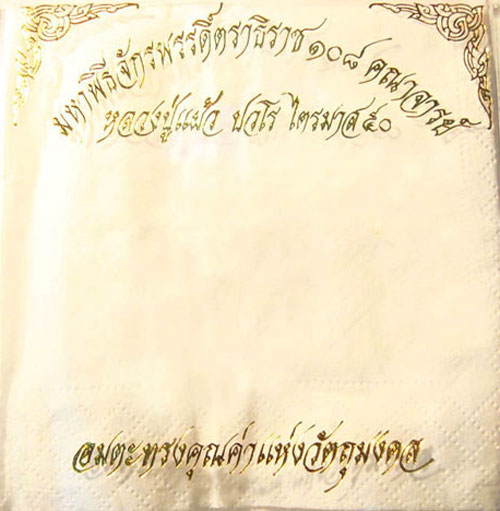 มหาพิธีจักรพรรดิ์ตราธิราช ๑๐๘ คณาจารย์
หลวงปู่แผ้ว ปวโร ไตรมาส ๕๐
อมตะทรงคุณค่าแห่งวัตถุมงคล